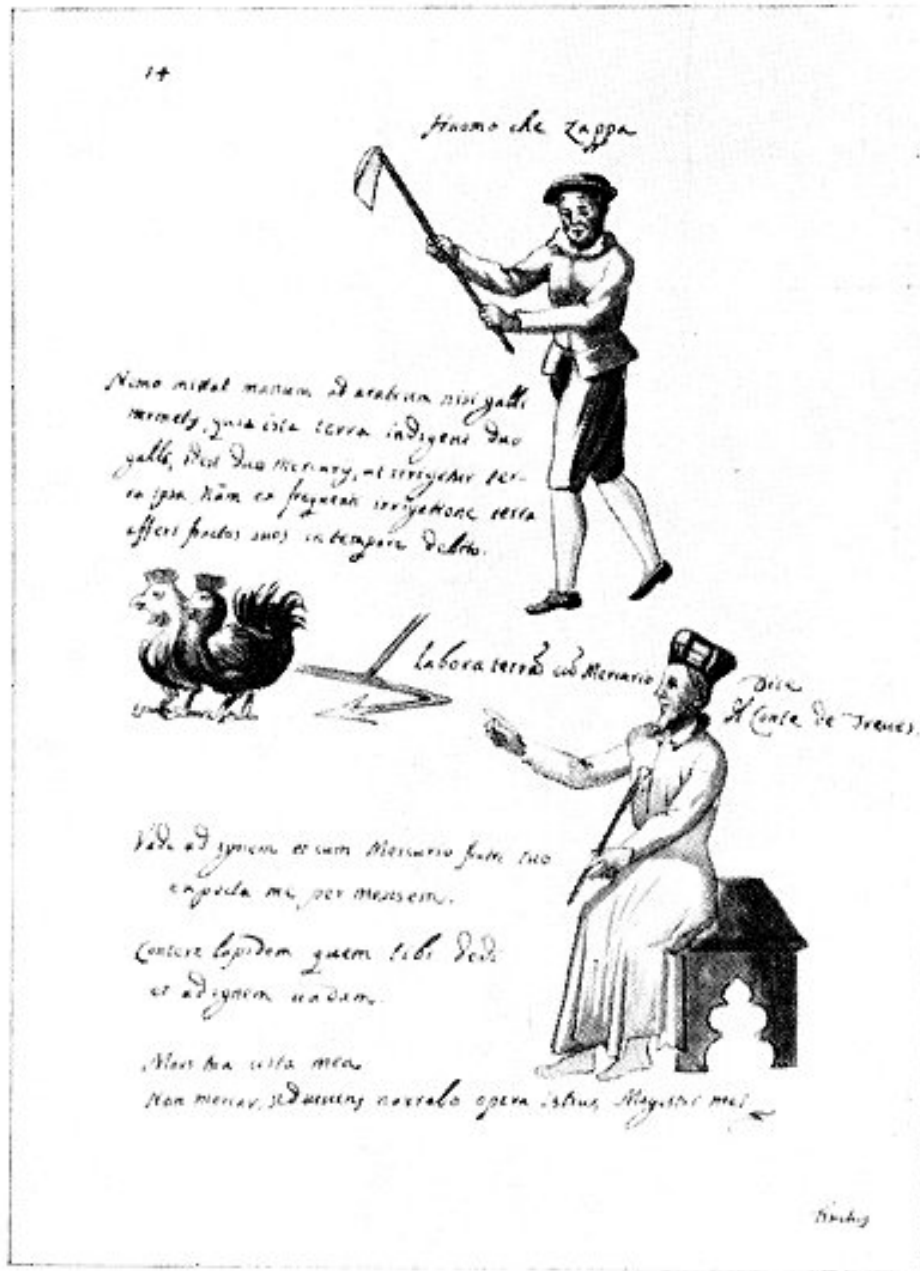 14
Huomo che zappa
Nemo mittat manum ad aratrum nisi galli
, quia ista terra indigent duo
galli, idest duo Mercurij, ut irrigetur ter-
ra ipsa. Nam ex frequenti irrigatione terra
affert fructus suos in tempore debito.
Labora terrã cũ Mercurio
Dice
il Conte de Treves.
Vade ad ignem et cum Mercurio fratre tuo
expecta me per mensem.
Contere lapidem quem tibi dedi
et ad ignem vadam.
Mors tua vita mea
Non moriar, sed vivens narrabo opera istius Magistri mei